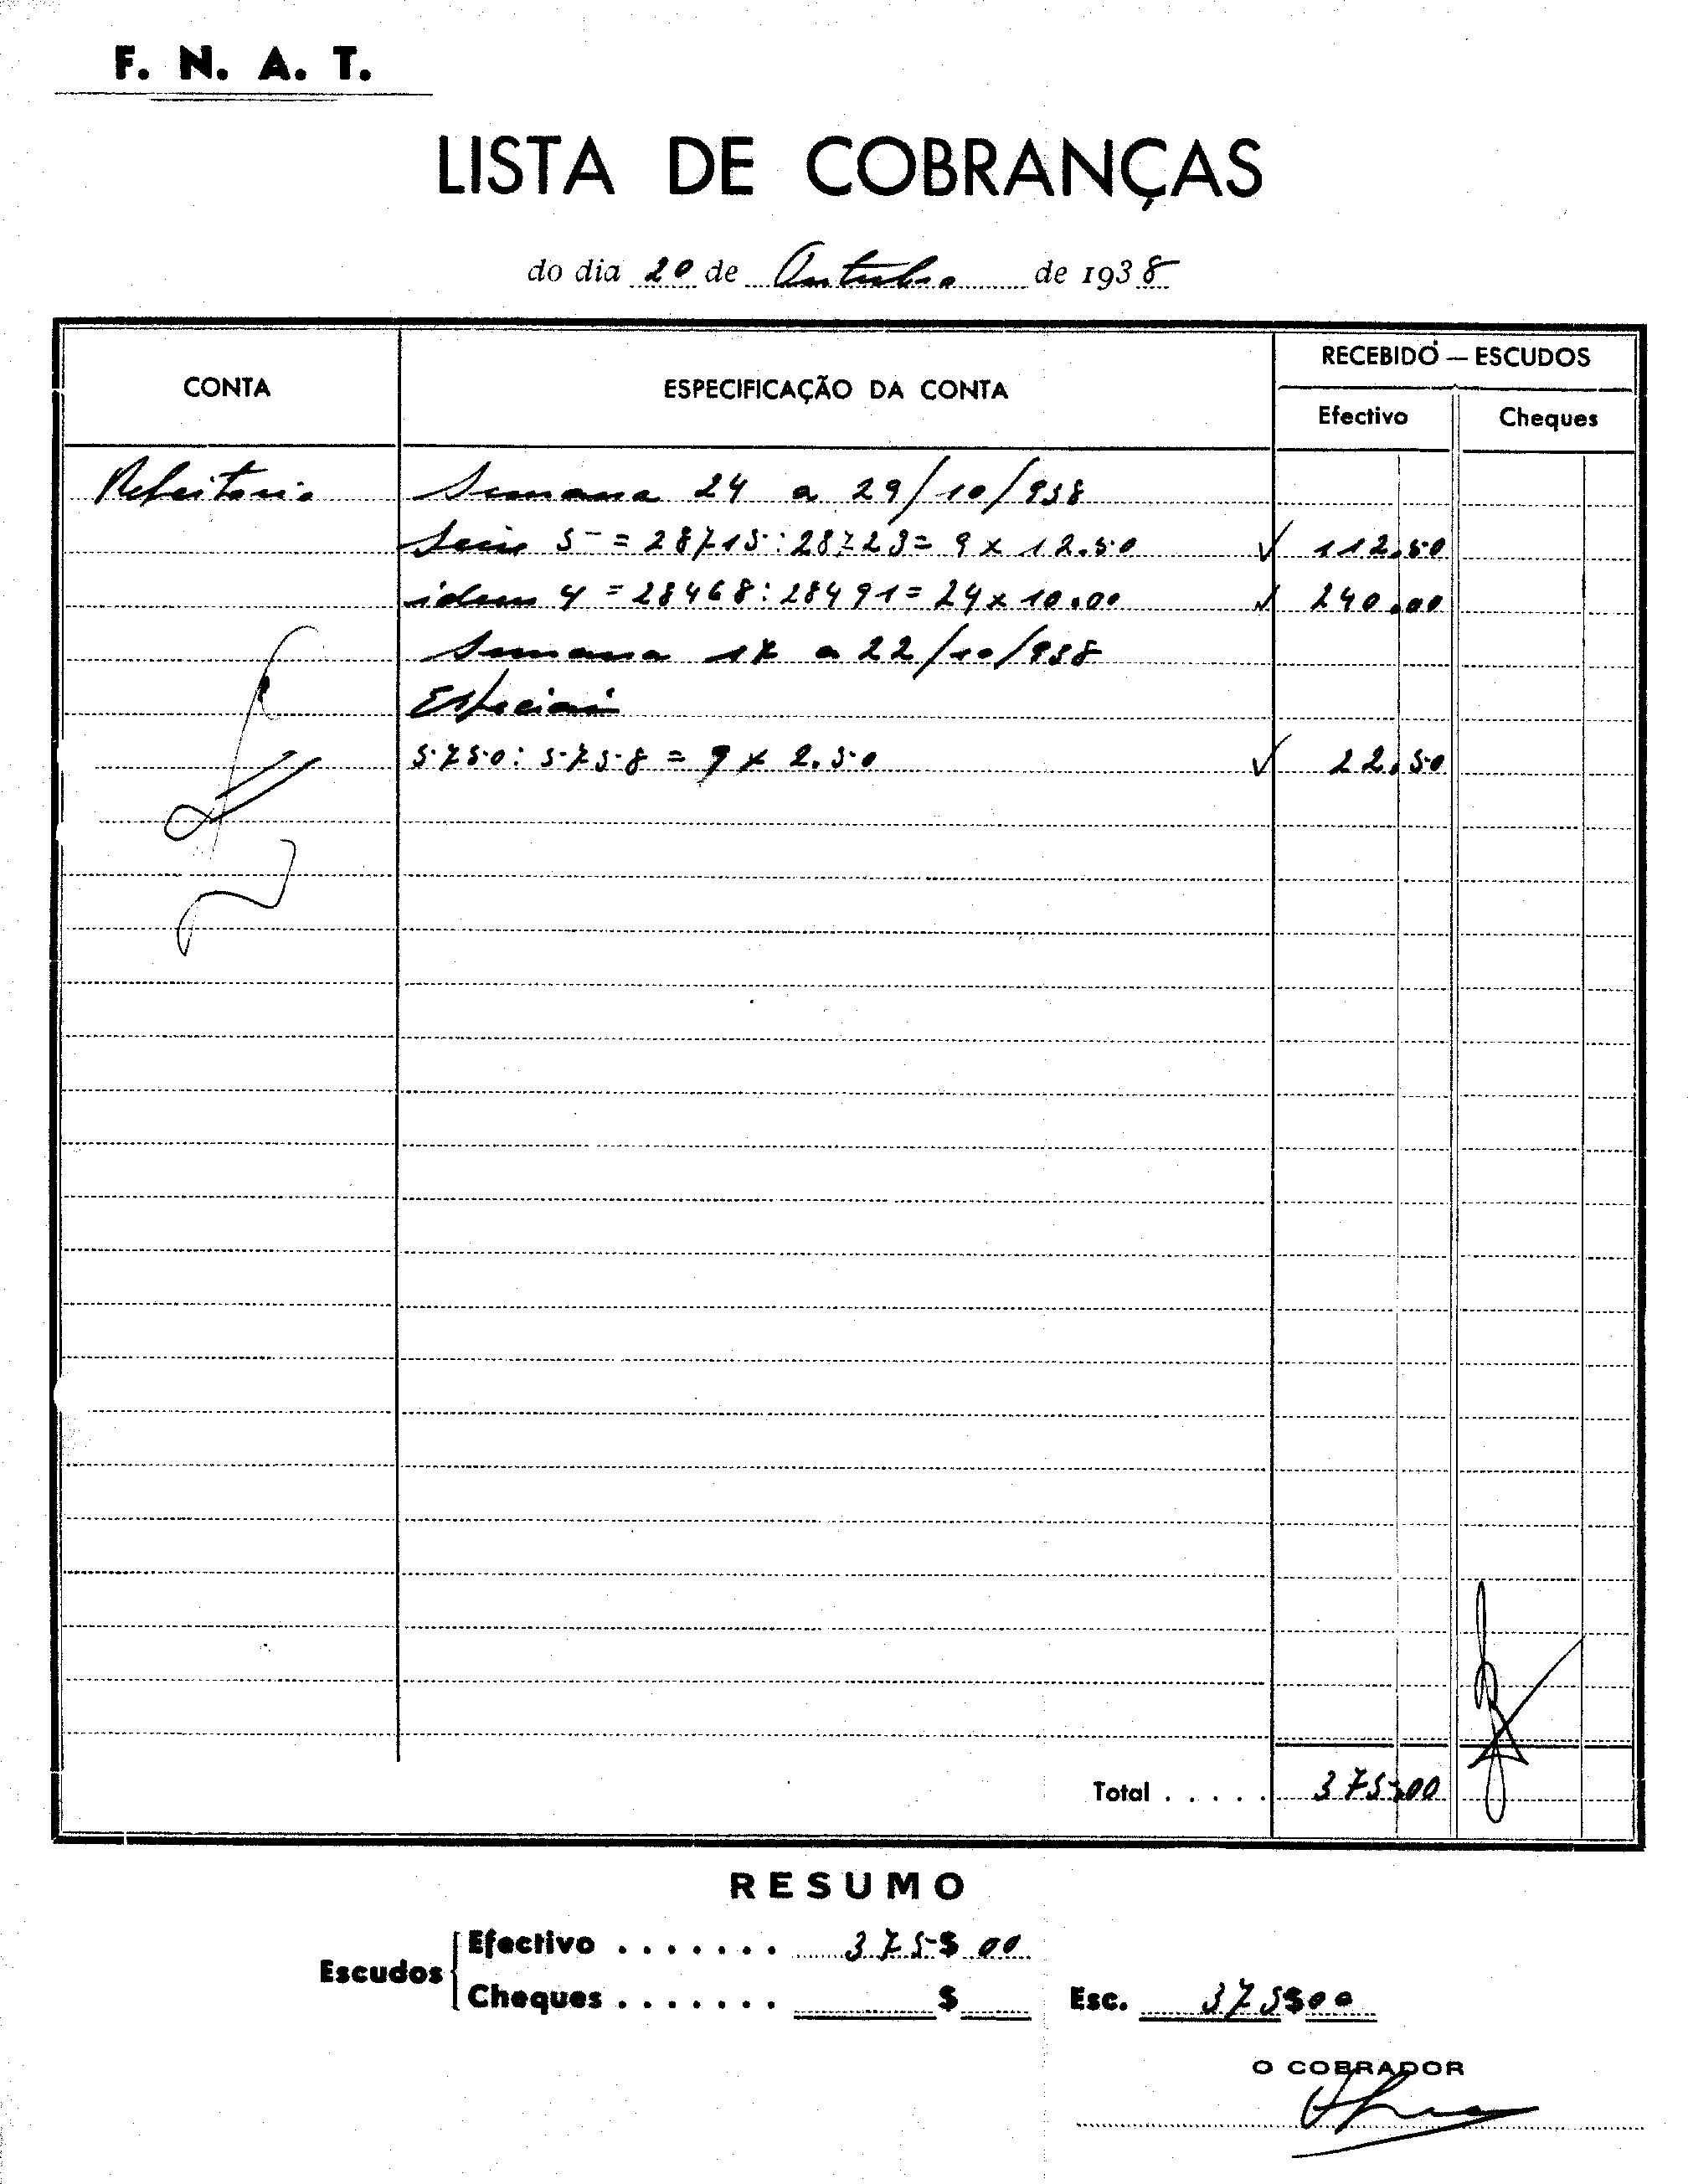 F. N. A. T.
LISTA DE COBRANÇAS
do dia 20 de Outubro de 1938
CONTA
ESPECIFICAÇÃO DA CONTA
RECEBIDO — ESCUDOS
Efectivo
Cheques
Refeitorio
Semana 24 a 29/10/938
Serie 5 = 28715:28723 = 9 x 12.50 ✓ 112.50
idem 4 = 28468:28491 = 24 x 10.00 ✓ 240.00
Semana 17 a 22/10/938
Especiais
5750:5758 = 9 x 2.50 ✓ 22.50
Total ..... 375.00
RESUMO
Escudos
Efectivo ....... 375$00
Cheques ....... $
Esc. 375$00
O COBRADOR